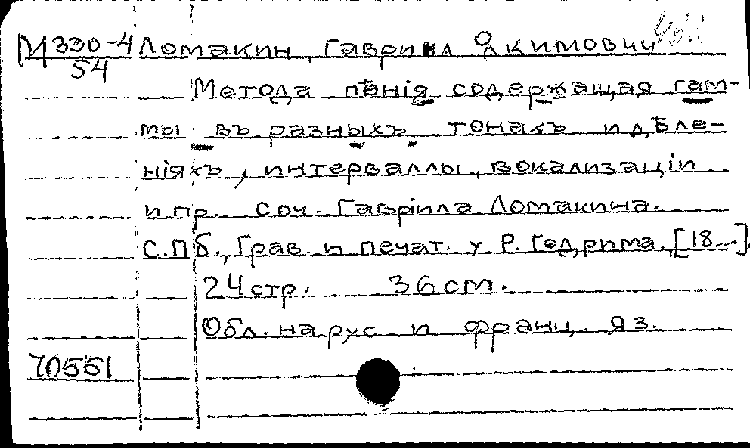 М 330-4 Ломакин, Гавриил Якимович
54
Метода пѣнія содержащая гам-
мы въ разныхъ тонахъ и дѣле-
ніяхъ, интерваллы, вокализаціи
и пр. соч. Гавріила Ломакина.
С.Пб., Грав. и печат. у Р. Гедрима, [18--]
24 стр. 36 cm.
Обл. на рус. и франц. яз.
70551